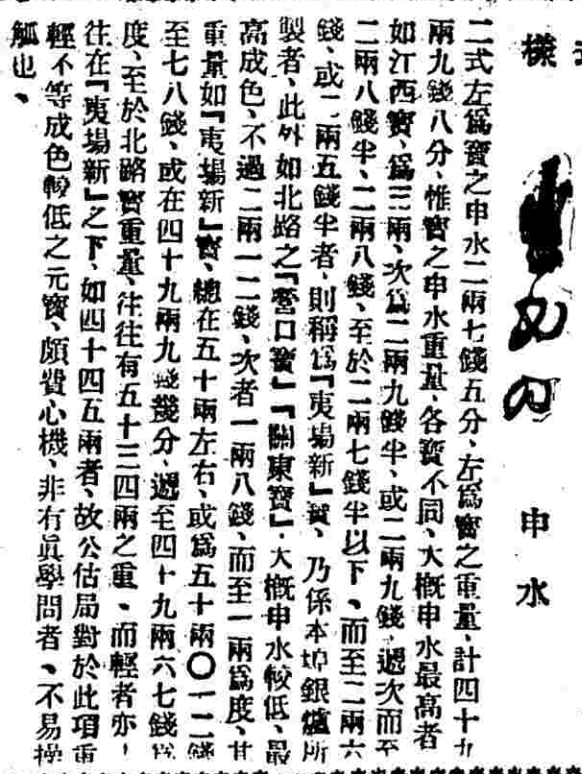 樣
申水
二式左爲寳之申水二兩七錢五分、左爲寳之重量、計四十九
兩九錢八分、惟寳之申水重量、各寳不同、大槪申水最高者
如江西寳、爲三兩、次爲二兩九錢半、或二兩九錢、遞次而至
二兩八錢半、二兩八錢、至於二兩七錢半以下、而至二兩六
錢、或二兩五錢半者、則稱爲『夷場新』寳、乃係本埠銀爐所
製者、此外如北路之『營口寳』『關東寳』、大槪申水較低、最
高成色、不過二兩一二錢、次者一兩八錢、而至一兩爲度、其
重量如『夷場新』寳、總在五十兩左右、或爲五十兩〇一二錢
至七八錢、或在四十九兩九錢幾分、遞至四十九兩六七錢爲
度、至於北路寳重量、往往有五十三四兩之重、而輕者亦
往在『夷場新』之下、如四十四五兩者、故公估局對於此項重
輕不等成色較低之元寳、頗費心機、非有眞學問者、不易操
觚也、